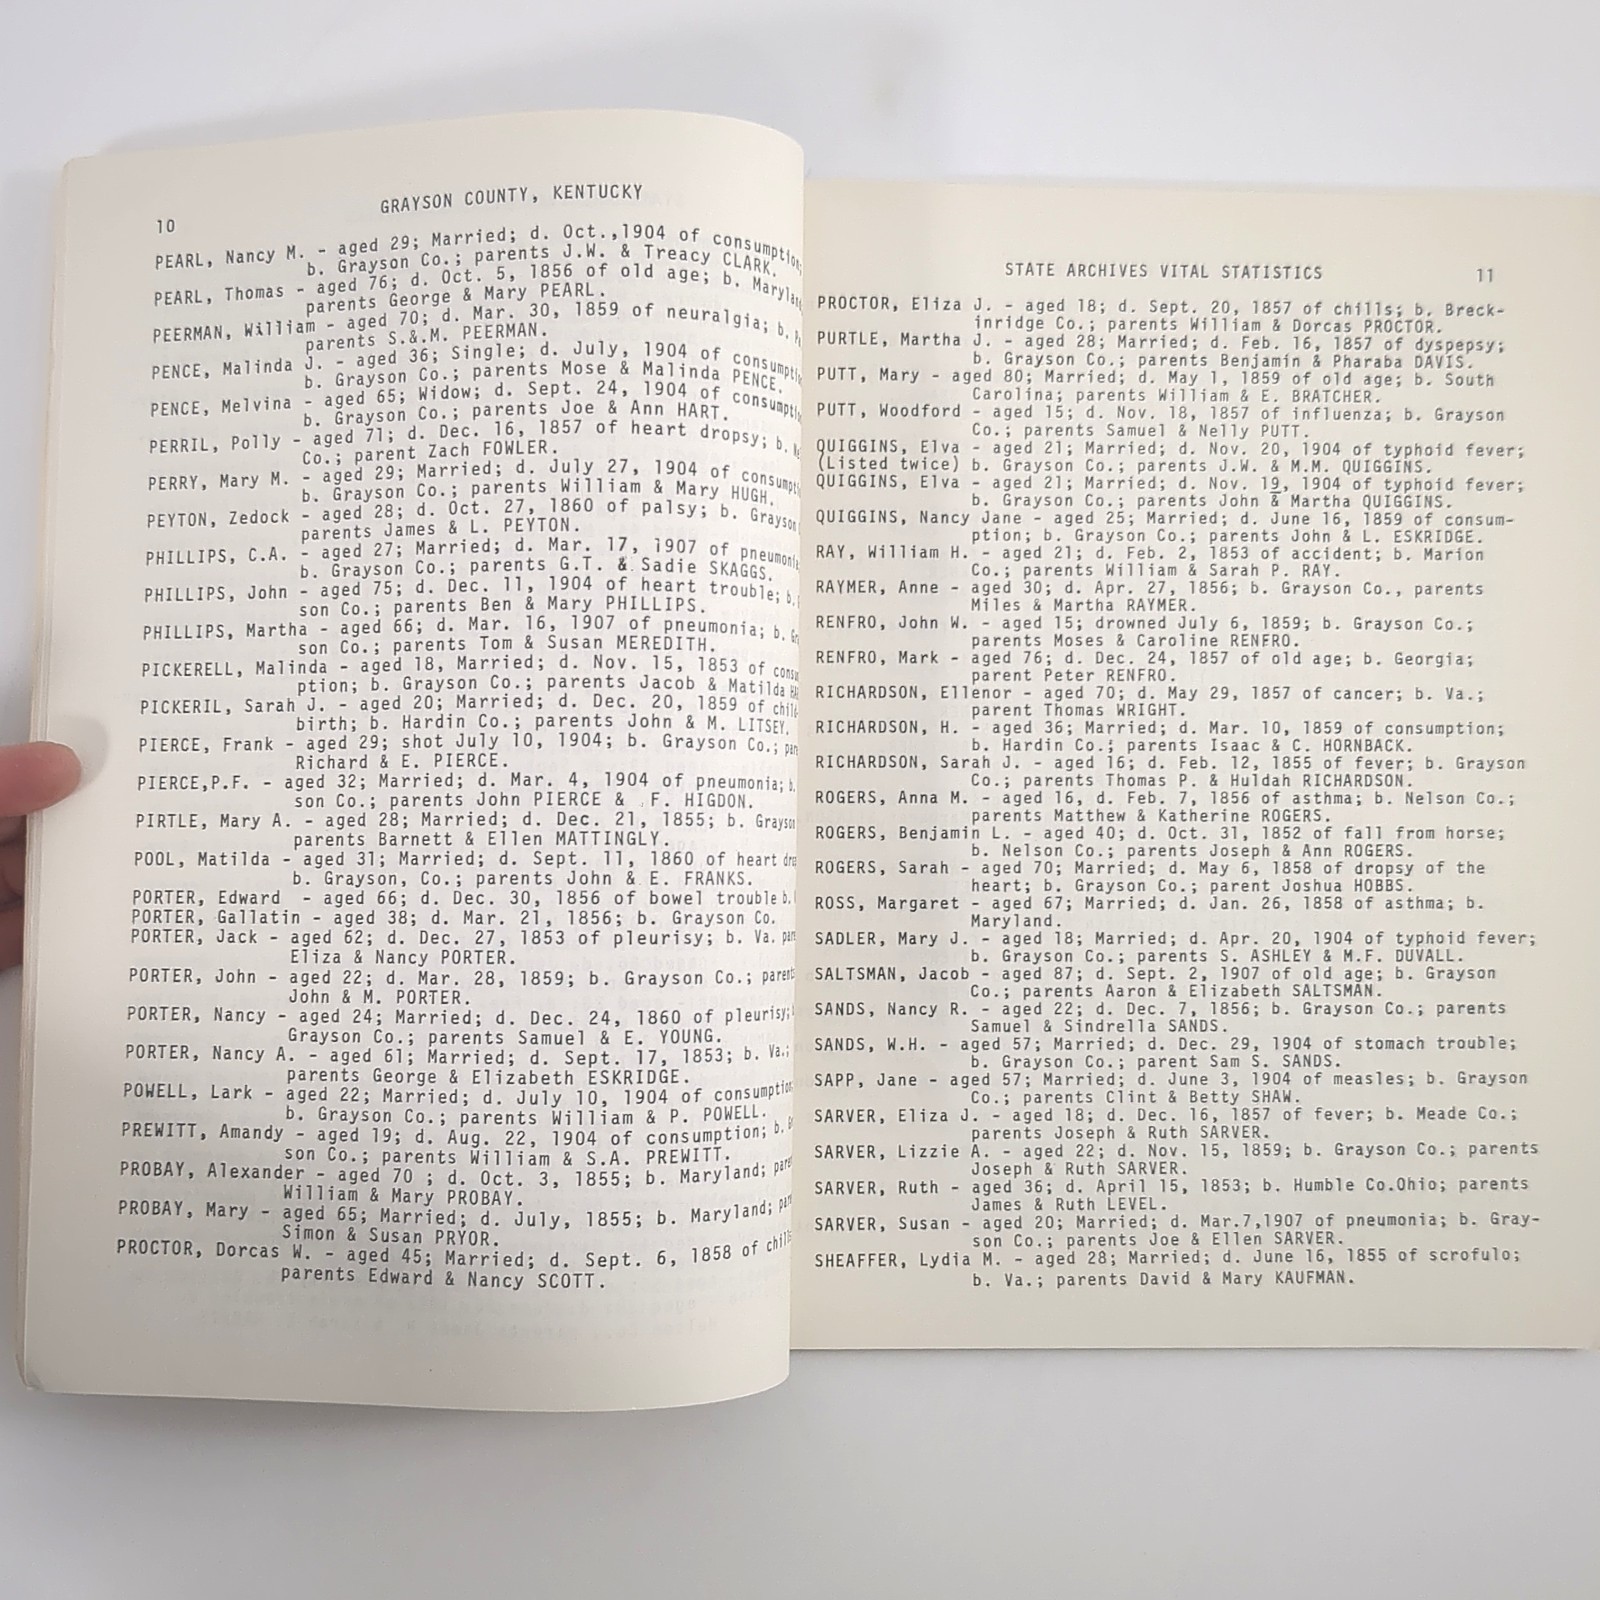 GRAYSON COUNTY, KENTUCKY
10
PEARL, Nancy M. - aged 29; Married; d. Oct.,1904 of consumption;
b. Grayson Co.; parents J.W. & Treacy CLARK.
PEARL, Thomas - aged 76; d. Oct. 5, 1856 of old age; b.
parents George & Mary PEARL.
PEERMAN, William - aged 70; d. Mar. 30, 1859 of neuralgia; b.
parents S.&.M. PEERMAN.
PENCE, Malinda J. - aged 36; Single; d. July, 1904 of
b. Grayson Co.; parents Mose & Malinda PENCE.
PENCE, Melvina - aged 65; Widow; d. Sept. 24, 1904 of
b. Grayson Co.; parents Joe & Ann HART.
PERRIL, Polly - aged 71; d. Dec. 16, 1857 of heart dropsy; b.
Co.; parent Zach FOWLER.
PERRY, Mary M. - aged 29; Married; d. July 27, 1904 of
b. Grayson Co.; parents William & Mary HUGH.
PEYTON, Zedock - aged 28; d. Oct. 27, 1860 of palsy; b. Grayson
parents James & L. PEYTON.
PHILLIPS, C.A. - aged 27; Married; d. Mar. 17, 1907 of
b. Grayson Co.; parents G.T. & Sadie SKAGGS.
PHILLIPS, John - aged 75; d. Dec. 11, 1904 of heart trouble; b.
son Co.; parents Ben & Mary PHILLIPS.
PHILLIPS, Martha - aged 66; d. Mar. 16, 1907 of pneumonia; b.
son Co.; parents Tom & Susan MEREDITH.
PICKERELL, Malinda - aged 18, Married; d. Nov. 15, 1853 of
ption; b. Grayson Co.; parents Jacob & Matilda
PICKERIL, Sarah J. - aged 20; Married; d. Dec. 20, 1859 of
birth; b. Hardin Co.; parents John & M. LITSEY.
PIERCE, Frank - aged 29; shot July 10, 1904; b. Grayson Co.;
Richard & E. PIERCE.
PIERCE,P.F. - aged 32; Married; d. Mar. 4, 1904 of pneumonia; b.
son Co.; parents John PIERCE & F. HIGDON.
PIRTLE, Mary A. - aged 28; Married; d. Dec. 21, 1855; b. Grayson
parents Barnett & Ellen MATTINGLY.
POOL, Matilda - aged 31; Married; d. Sept. 11, 1860 of heart
b. Grayson, Co.; parents John & E. FRANKS.
PORTER, Edward - aged 66; d. Dec. 30, 1856 of bowel trouble b.
PORTER, Gallatin - aged 38; d. Mar. 21, 1856; b. Grayson Co.
PORTER, Jack - aged 62; d. Dec. 27, 1853 of pleurisy; b. Va.
Eliza & Nancy PORTER.
PORTER, John - aged 22; d. Mar. 28, 1859; b. Grayson Co.;
John & M. PORTER.
PORTER, Nancy - aged 24; Married; d. Dec. 24, 1860 of pleurisy;
Grayson Co.; parents Samuel & E. YOUNG.
PORTER, Nancy A. - aged 61; Married; d. Sept. 17, 1853; b. Va.;
parents George & Elizabeth ESKRIDGE.
POWELL, Lark - aged 22; Married; d. July 10, 1904 of consumption;
b. Grayson Co.; parents William & P. POWELL.
PREWITT, Amandy - aged 19; d. Aug. 22, 1904 of consumption; b.
son Co.; parents William & S.A. PREWITT.
PROBAY, Alexander - aged 70 ; d. Oct. 3, 1855; b. Maryland;
William & Mary PROBAY.
PROBAY, Mary - aged 65; Married; d. July, 1855; b. Maryland;
Simon & Susan PRYOR.
PROCTOR, Dorcas W. - aged 45; Married; d. Sept. 6, 1858 of
parents Edward & Nancy SCOTT.
STATE ARCHIVES VITAL STATISTICS 11
PROCTOR, Eliza J. - aged 18; d. Sept. 20, 1857 of chills; b. Breck-
inridge Co.; parents William & Dorcas PROCTOR.
PURTLE, Martha J. - aged 28; Married; d. Feb. 16, 1857 of dyspepsy;
b. Grayson Co.; parents Benjamin & Pharaba DAVIS.
PUTT, Mary - aged 80; Married; d. May 1, 1859 of old age; b. South
Carolina; parents William & E. BRATCHER.
PUTT, Woodford - aged 15; d. Nov. 18, 1857 of influenza; b. Grayson
Co.; parents Samuel & Nelly PUTT.
QUIGGINS, Elva - aged 21; Married; d. Nov. 20, 1904 of typhoid fever;
(Listed twice) b. Grayson Co.; parents J.W. & M.M. QUIGGINS.
QUIGGINS, Elva - aged 21; Married; d. Nov. 19, 1904 of typhoid fever;
b. Grayson Co.; parents John & Martha QUIGGINS.
QUIGGINS, Nancy Jane - aged 25; Married; d. June 16, 1859 of consum-
ption; b. Grayson Co.; parents John & L. ESKRIDGE.
RAY, William H. - aged 21; d. Feb. 2, 1853 of accident; b. Marion
Co.; parents William & Sarah P. RAY.
RAYMER, Anne - aged 30; d. Apr. 27, 1856; b. Grayson Co., parents
Miles & Martha RAYMER.
RENFRO, John W. - aged 15; drowned July 6, 1859; b. Grayson Co.;
parents Moses & Caroline RENFRO.
RENFRO, Mark - aged 76; d. Dec. 24, 1857 of old age; b. Georgia;
parent Peter RENFRO.
RICHARDSON, Ellenor - aged 70; d. May 29, 1857 of cancer; b. Va.;
parent Thomas WRIGHT.
RICHARDSON, H. - aged 36; Married; d. Mar. 10, 1859 of consumption;
b. Hardin Co.; parents Isaac & C. HORNBACK.
RICHARDSON, Sarah J. - aged 16; d. Feb. 12, 1855 of fever; b. Grayson
Co.; parents Thomas P. & Huldah RICHARDSON.
ROGERS, Anna M. - aged 16, d. Feb. 7, 1856 of asthma; b. Nelson Co.;
parents Matthew & Katherine ROGERS.
ROGERS, Benjamin L. - aged 40; d. Oct. 31, 1852 of fall from horse;
b. Nelson Co.; parents Joseph & Ann ROGERS.
ROGERS, Sarah - aged 70; Married; d. May 6, 1858 of dropsy of the
heart; b. Grayson Co.; parent Joshua HOBBS.
ROSS, Margaret - aged 67; Married; d. Jan. 26, 1858 of asthma; b.
Maryland.
SADLER, Mary J. - aged 18; Married; d. Apr. 20, 1904 of typhoid fever;
b. Grayson Co.; parents S. ASHLEY & M.F. DUVALL.
SALTSMAN, Jacob - aged 87; d. Sept. 2, 1907 of old age; b. Grayson
Co.; parents Aaron & Elizabeth SALTSMAN.
SANDS, Nancy R. - aged 22; d. Dec. 7, 1856; b. Grayson Co.; parents
Samuel & Sindrella SANDS.
SANDS, W.H. - aged 57; Married; d. Dec. 29, 1904 of stomach trouble;
b. Grayson Co.; parent Sam S. SANDS.
SAPP, Jane - aged 57; Married; d. June 3, 1904 of measles; b. Grayson
Co.; parents Clint & Betty SHAW.
SARVER, Eliza J. - aged 18; d. Dec. 16, 1857 of fever; b. Meade Co.;
parents Joseph & Ruth SARVER.
SARVER, Lizzie A. - aged 22; d. Nov. 15, 1859; b. Grayson Co.; parents
Joseph & Ruth SARVER.
SARVER, Ruth - aged 36; d. April 15, 1853; b. Humble Co.Ohio; parents
James & Ruth LEVEL.
SARVER, Susan - aged 20; Married; d. Mar.7,1907 of pneumonia; b. Gray-
son Co.; parents Joe & Ellen SARVER.
SHEAFFER, Lydia M. - aged 28; Married; d. June 16, 1855 of scrofulo;
b. Va.; parents David & Mary KAUFMAN.